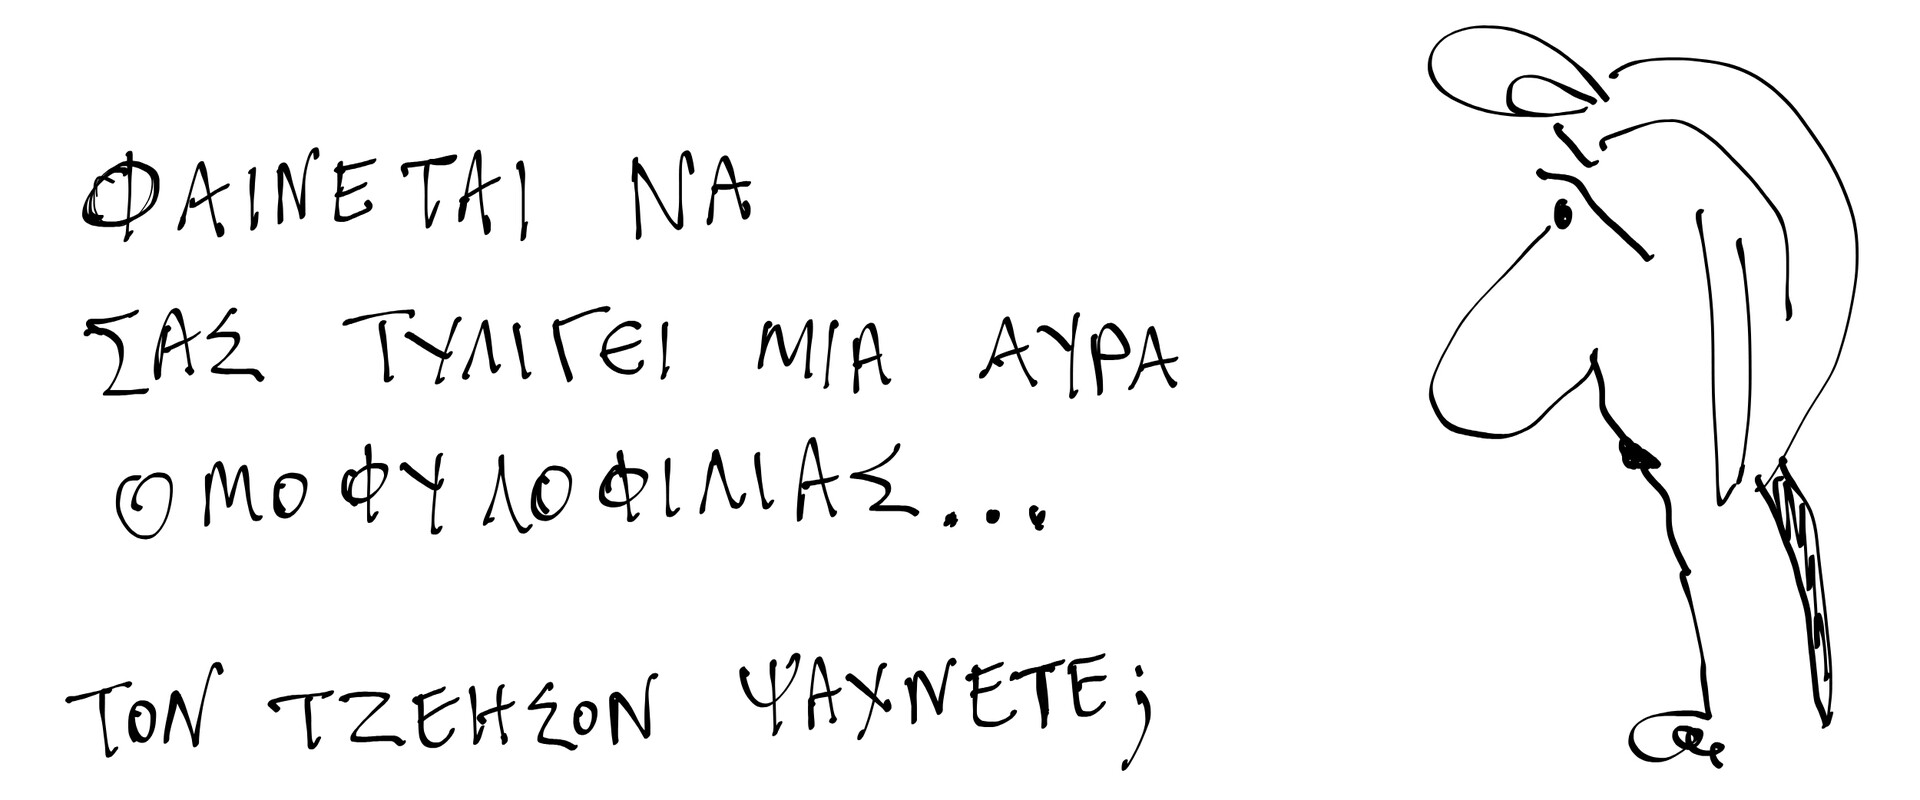 ΦΑΙΝΕΤΑΙ ΝΑ
ΣΑΣ ΤΥΛΙΓΕΙ ΜΙΑ ΑΥΡΑ
ΟΜΟΦΥΛΟΦΙΛΙΑΣ...
ΤΟΝ ΤΖΕΗΣΟΝ ΨΑΧΝΕΤΕ;